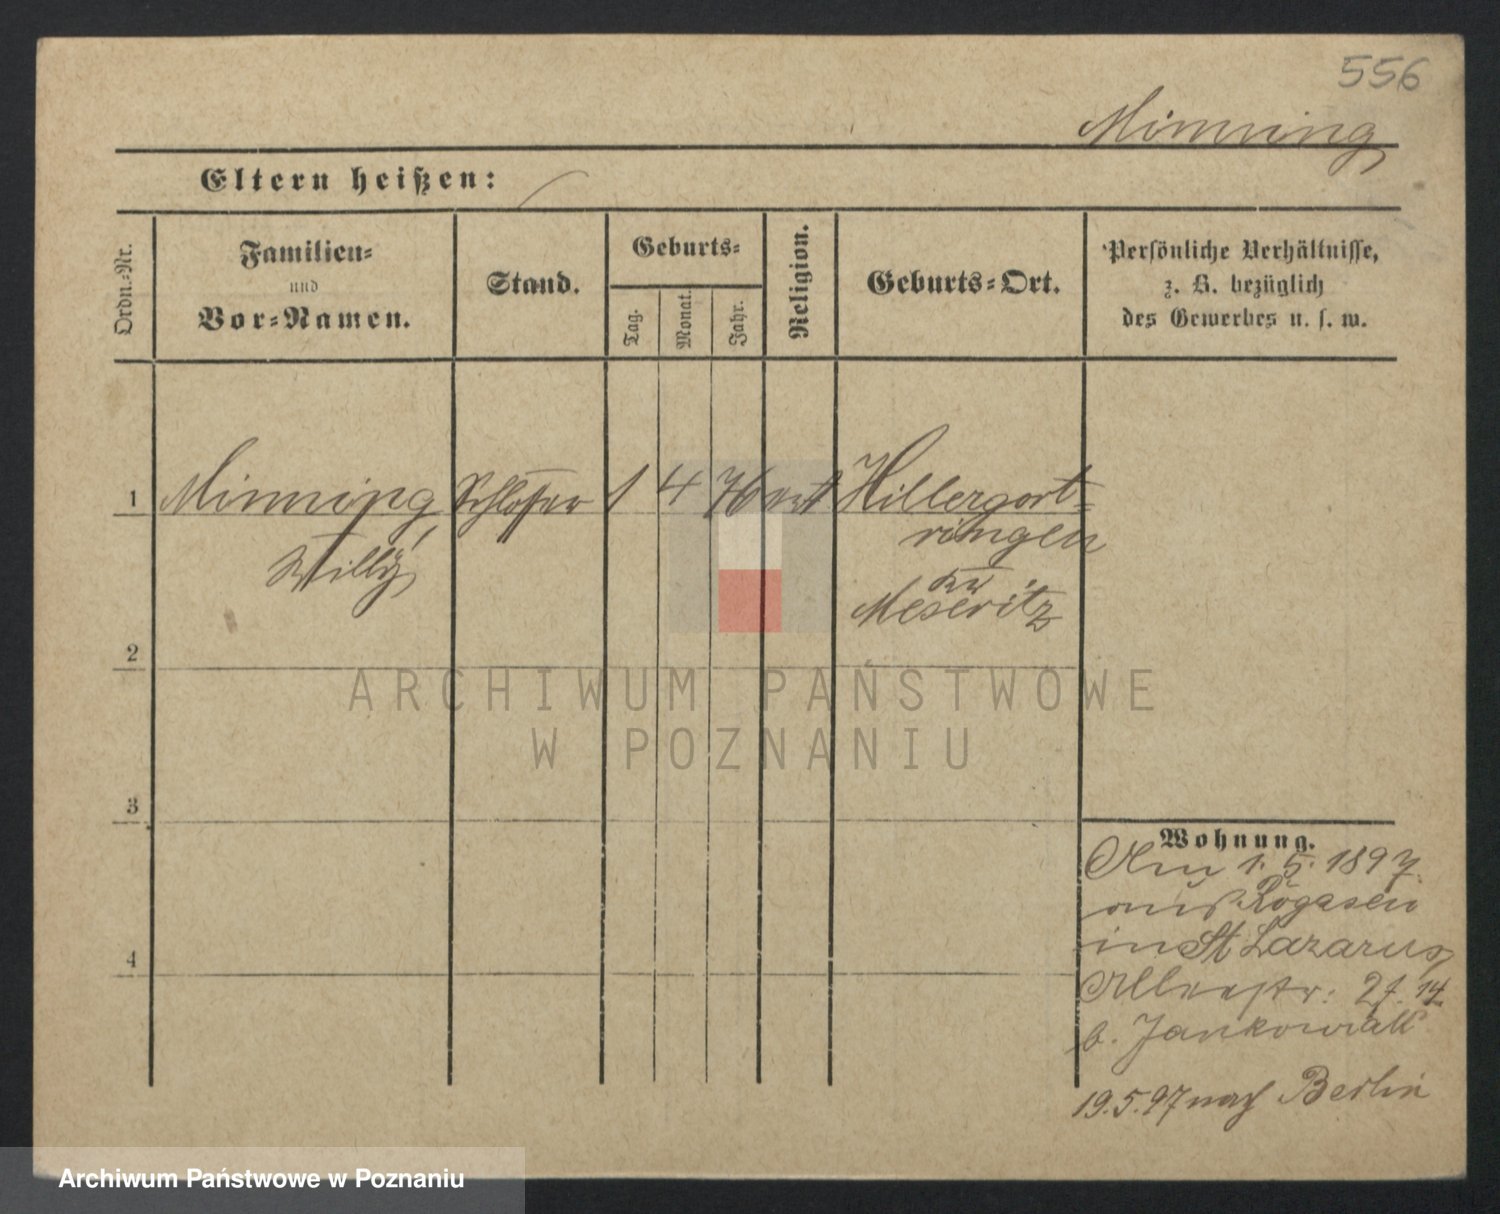 556
Minning
Eltern heißen:
Ordn.-Nr.
Familien-
und
Vor-Namen.
Stand.
Geburts-
Tag.
Monat.
Jahr.
Religion.
Geburts-Ort.
Persönliche Verhältnisse,
z. B. bezüglich
des Gewerbes u. s. w.
1 Minning, Schlosser 1 4 76 Hillergort-
Willy ringen
Kr
Meseritz
2
ARCHIWUM PAŃSTWOWE
W POZNANIU
3
Wohnung.
Am 1. 5. 1897.
aus Rogasen
in St Lazarus
Alleestr: 14.
b. Jankowiak
4
19.5.97 nach Berlin
Archiwum Państwowe w Poznaniu